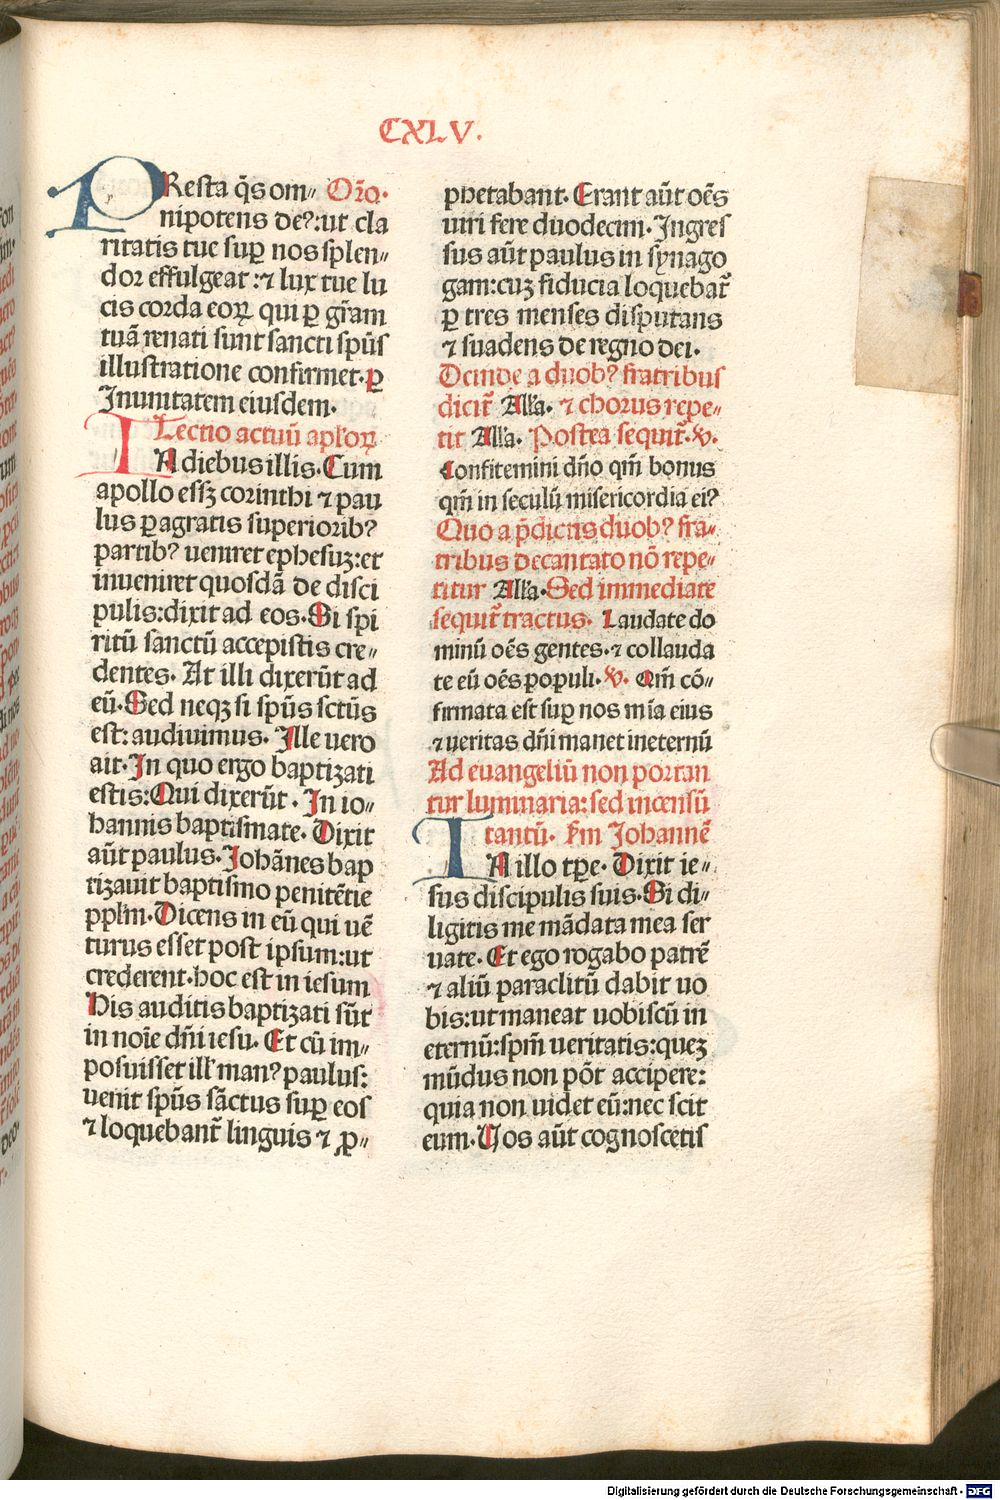 CXLV.
PResta q̃s om〃 Or̃o.
nipotens deꝰ:ut cla
ritatis tue sup̱ nos splen〃
dor effulgeat :⁊ lux tue lu
cis corda eoꝝ qui ꝑ gr̃am
tuã renati sunt sancti sp̃us
illustratione confirmet.ꝑ
In unitatem eiusdem.
Lectio actuũ apl'oꝝ
IN diebus illis. Cum
apollo essꝫ corinthi ⁊ pau
lus ꝑagratis superioribꝰ
partibꝰ ueniret ephesuꝫ:et
inueniret quosdã de disci
pulis:dixit ad eos. Si spi
ritũ sanctũ accepistis cre〃
dentes. At illi dixerũt ad
eũ. Sed neqꝫ si sp̃us sctũs
est: audiuimus. Ille uero
ait. In quo ergo baptizati
estis: Qui dixerũt. In io〃
hannis baptismate. Dixit
aũt paulus. Johãnes bap
tizauit baptismo penitẽtie
ppl'm. Dicens in eũ qui uẽ
turus esset post ipsum:ut
crederent.hoc est in iesum
His auditis baptizati sũt
in noĩe dñi iesu. Et cũ im〃
posuisset ill' manꝰ paulus:
uenit sp̃us sãctus sup̱ eos
⁊ loquebant̃ linguis ⁊ ꝓ〃
phetabant. Erant aũt oẽs
uiri fere duodecim. Ingres
sus aũt paulus in synago
gam:cuꝫ fiducia loquebat̃
ꝑ tres menses disputans
⁊ suadens de regno dei.
Deinde a duobꝰ fratribus
dicit̃ All'a. ⁊ chorus repe〃
tit All'a. Postea sequit̃. ℣.
Confitemini dño qm̃ bonus
qm̃ in seculũ misericordia eiꝰ
Quo a p̃dictis duobꝰ fra〃
tribus decantato nõ repe〃
titur All'a. Sed immediate
sequit̃ tractus. Laudate do
minũ oẽs gentes.⁊ collauda
te eũ oẽs populi. ℣. Qm̃ cõ〃
firmata est sup̱ nos mĩa eius
⁊ ueritas dñi manet ineternũ
Ad euangeliũ non portan
tur luminaria:sed incensũ
tantũ. Fm Johannẽ
IN illo tꝑe. Dixit ie〃
sus discipulis suis. Si di〃
ligitis me mãdata mea ser
uate. Et ego rogabo patrẽ
⁊ aliũ paraclitũ dabit uo
bis:ut maneat uobiscũ in
eternũ:spm̃ ueritatis:queꝫ
mũdus non põt accipere:
quia non uidet eũ:nec scit
eum. Uos aũt cognoscetis
Digitalisierung gefördert durch die Deutsche Forschungsgemeinschaft - DFG